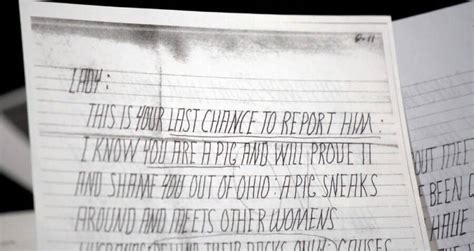 6-11
LADY:
THIS IS YOUR LAST CHANCE TO REPORT HIM:
I KNOW YOU ARE A PIG AND WILL PROVE IT
AND SHAME YOU OUT OF OHIO: A PIG SNEAKS
AROUND AND MEETS OTHER WOMENS
HUSBANDS BEHIND THEIR BACKS
OUT MEET
BEEN
HAVE